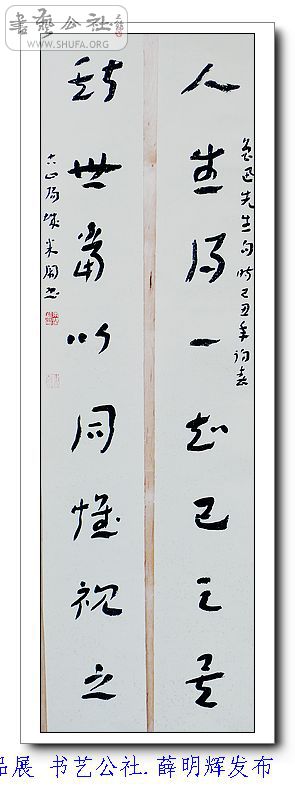 書藝公社
WWW.SHUFA.ORG
人生得一知己足矣
魯迅先生句 時己丑年春
斯世當以同懷視之
品展 书艺公社.薛明辉发布